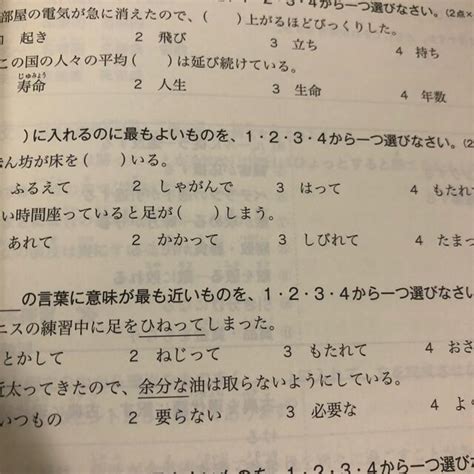 4から一つ選びなさい。(2点×
部屋の電気が急に消えたので、( )上がるほどびっくりした。
起き 2 飛び 3 立ち 4 持ち
この国の人々の平均( )は延び続けている。
じゅみょう
寿命 2 人生 3 生命 4 年数
)に入れるのに最もよいものを、1・2・3・4から一つ選びなさい。(2
ん坊が床を( )いる。
ふるえて 2 しゃがんで 3 はって 4 もたれて
い時間座っていると足が( )しまう。
あれて 2 かかって 3 しびれて 4 たまっ
の言葉に意味が最も近いものを、1・2・3・4から一つ選びなさい
ニスの練習中に足をひねってしまった。
とかして 2 ねじって 3 もたれて 4 おさ
近太ってきたので、余分な油は取らないようにしている。
いつもの 2 要らない 3 必要な 4 よ
に入れるのに最もよいものを、1・2・3・4から一つ選びな